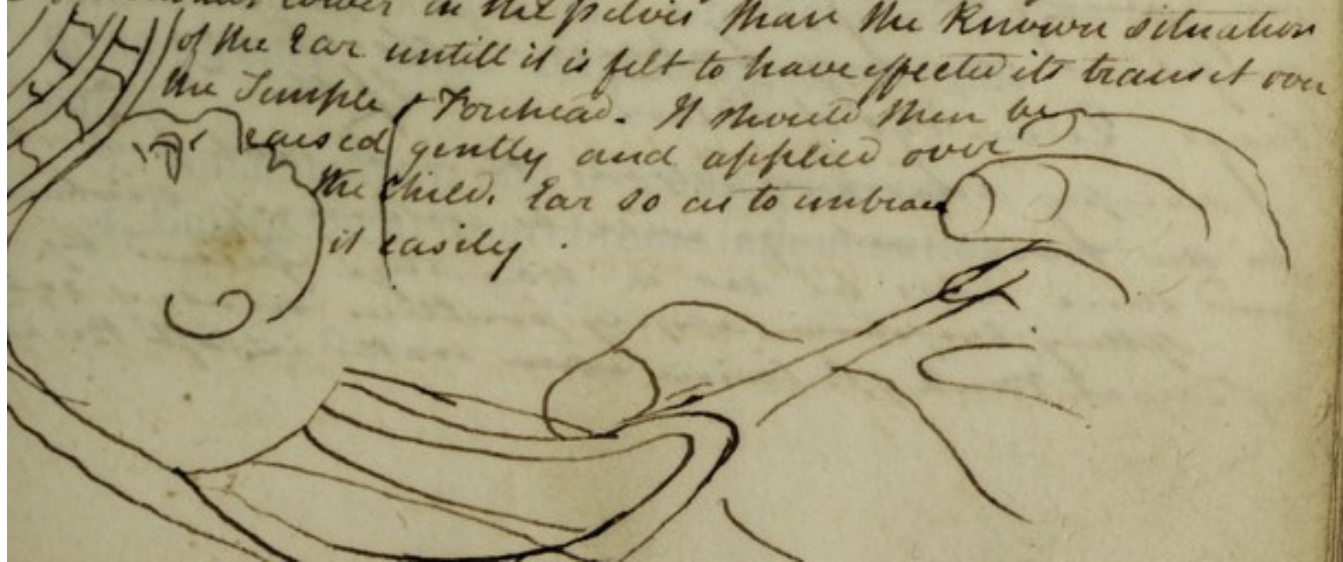 lower in the pelvis than the Known situation
of the Ear untill it is felt to have effected its transit over
the Temple & Forehead. It should then be
raised gently and applied over
the Child. Ear so as to embrace
it easily.